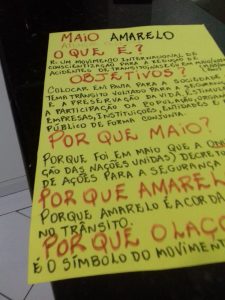 MAIO AMARELO
O QUE É?
É UM MOVIMENTO INTERNACIONAL DE
CONSCIENTIZAÇÃO PARA A REDUÇÃO DE
ACIDENTES DE TRÂNSITO
OBJETIVOS?
COLOCAR EM PAUTA PARA A SOCIEDADE
TEMA TRÂNSITO VOLTADO PARA A SEGURANÇA
E A PRESERVAÇÃO DA VIDA. ESTIMULA
A PARTICIPAÇÃO DA POPULAÇÃO, ORGÃOS
EMPRESAS, INSTITUIÇÕES ENTIDADES E
PÚBLICO DE FORMA CONJUNTA
POR QUE MAIO?
PORQUE FOI EM MAIO QUE A
ÇÃO DAS NAÇÕES UNIDAS) DECRETO
DE AÇÕES PARA A SEGURANÇA
POR QUE AMAREL
PORQUE AMARELO É A COR DA
NO TRÂNSITO.
POR QUE O LAÇO
É O SÍMBOLO DO MOVIMENT